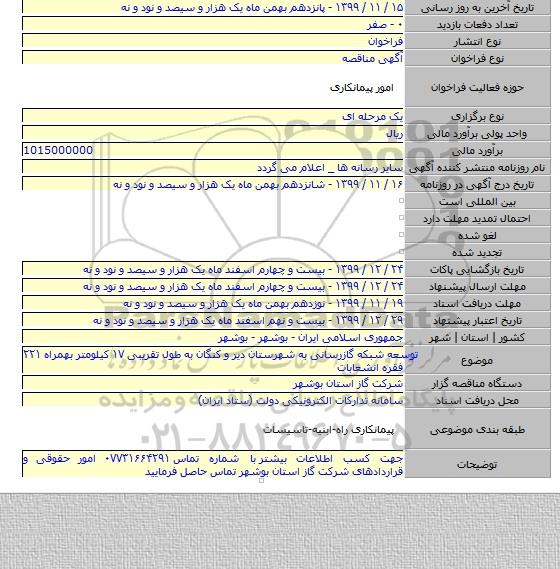 تاریخ آخرین به روز رسانی ۱۵ / ۱۱ / ۱۳۹۹ - پانزدهم بهمن ماه یک هزار و سیصد و نود و نه
تعداد دفعات بازدید ۰ - صفر
نوع انتشار فراخوان
نوع فراخوان آگهی مناقصه
حوزه فعالیت فراخوان امور پیمانکاری
نوع برگزاری یک مرحله ای
واحد پولی برآورد مالی ریال
برآورد مالی 1015000000
نام روزنامه منتشر کننده آگهی سایر رسانه ها _ اعلام می گردد
تاریخ درج آگهی در روزنامه ۱۶ / ۱۱ / ۱۳۹۹ - شانزدهم بهمن ماه یک هزار و سیصد و نود و نه
بین المللی است
احتمال تمدید مهلت دارد
لغو شده
تجدید شده
تاریخ بازگشایی پاکات ۲۴ / ۱۲ / ۱۳۹۹ - بیست و چهارم اسفند ماه یک هزار و سیصد و نود و نه
مهلت ارسال پیشنهاد ۲۴ / ۱۲ / ۱۳۹۹ - بیست و چهارم اسفند ماه یک هزار و سیصد و نود و نه
مهلت دریافت اسناد ۱۹ / ۱۱ / ۱۳۹۹ - نوزدهم بهمن ماه یک هزار و سیصد و نود و نه
تاریخ اعتبار پیشنهاد ۲۹ / ۱۲ / ۱۳۹۹ - بیست و نهم اسفند ماه یک هزار و سیصد و نود و نه
کشور | استان | شهر جمهوری اسلامی ایران - بوشهر - بوشهر
موضوع توسعه شبکه گازرسانی به شهرستان دیر و کنگان به طول تقریبی ۱۷ کیلومتر بهمراه ۲۲۱
فقره انشعابات
دستگاه مناقصه گزار شرکت گاز استان بوشهر
محل دریافت اسناد سامانه تدارکات الکترونیکی دولت (ستاد ایران)
طبقه بندی موضوعی پیمانکاری راه-ابنیه-تاسیسات
توضیحات جهت کسب اطلاعات بیشتر با شماره تماس ۰۷۷۳۱۶۶۴۲۹۱ امور حقوقی و
قراردادهای شرکت گاز استان بوشهر تماس حاصل فرمایید
۰۲۱-۸۸۳۴۹۶۷۰-۵